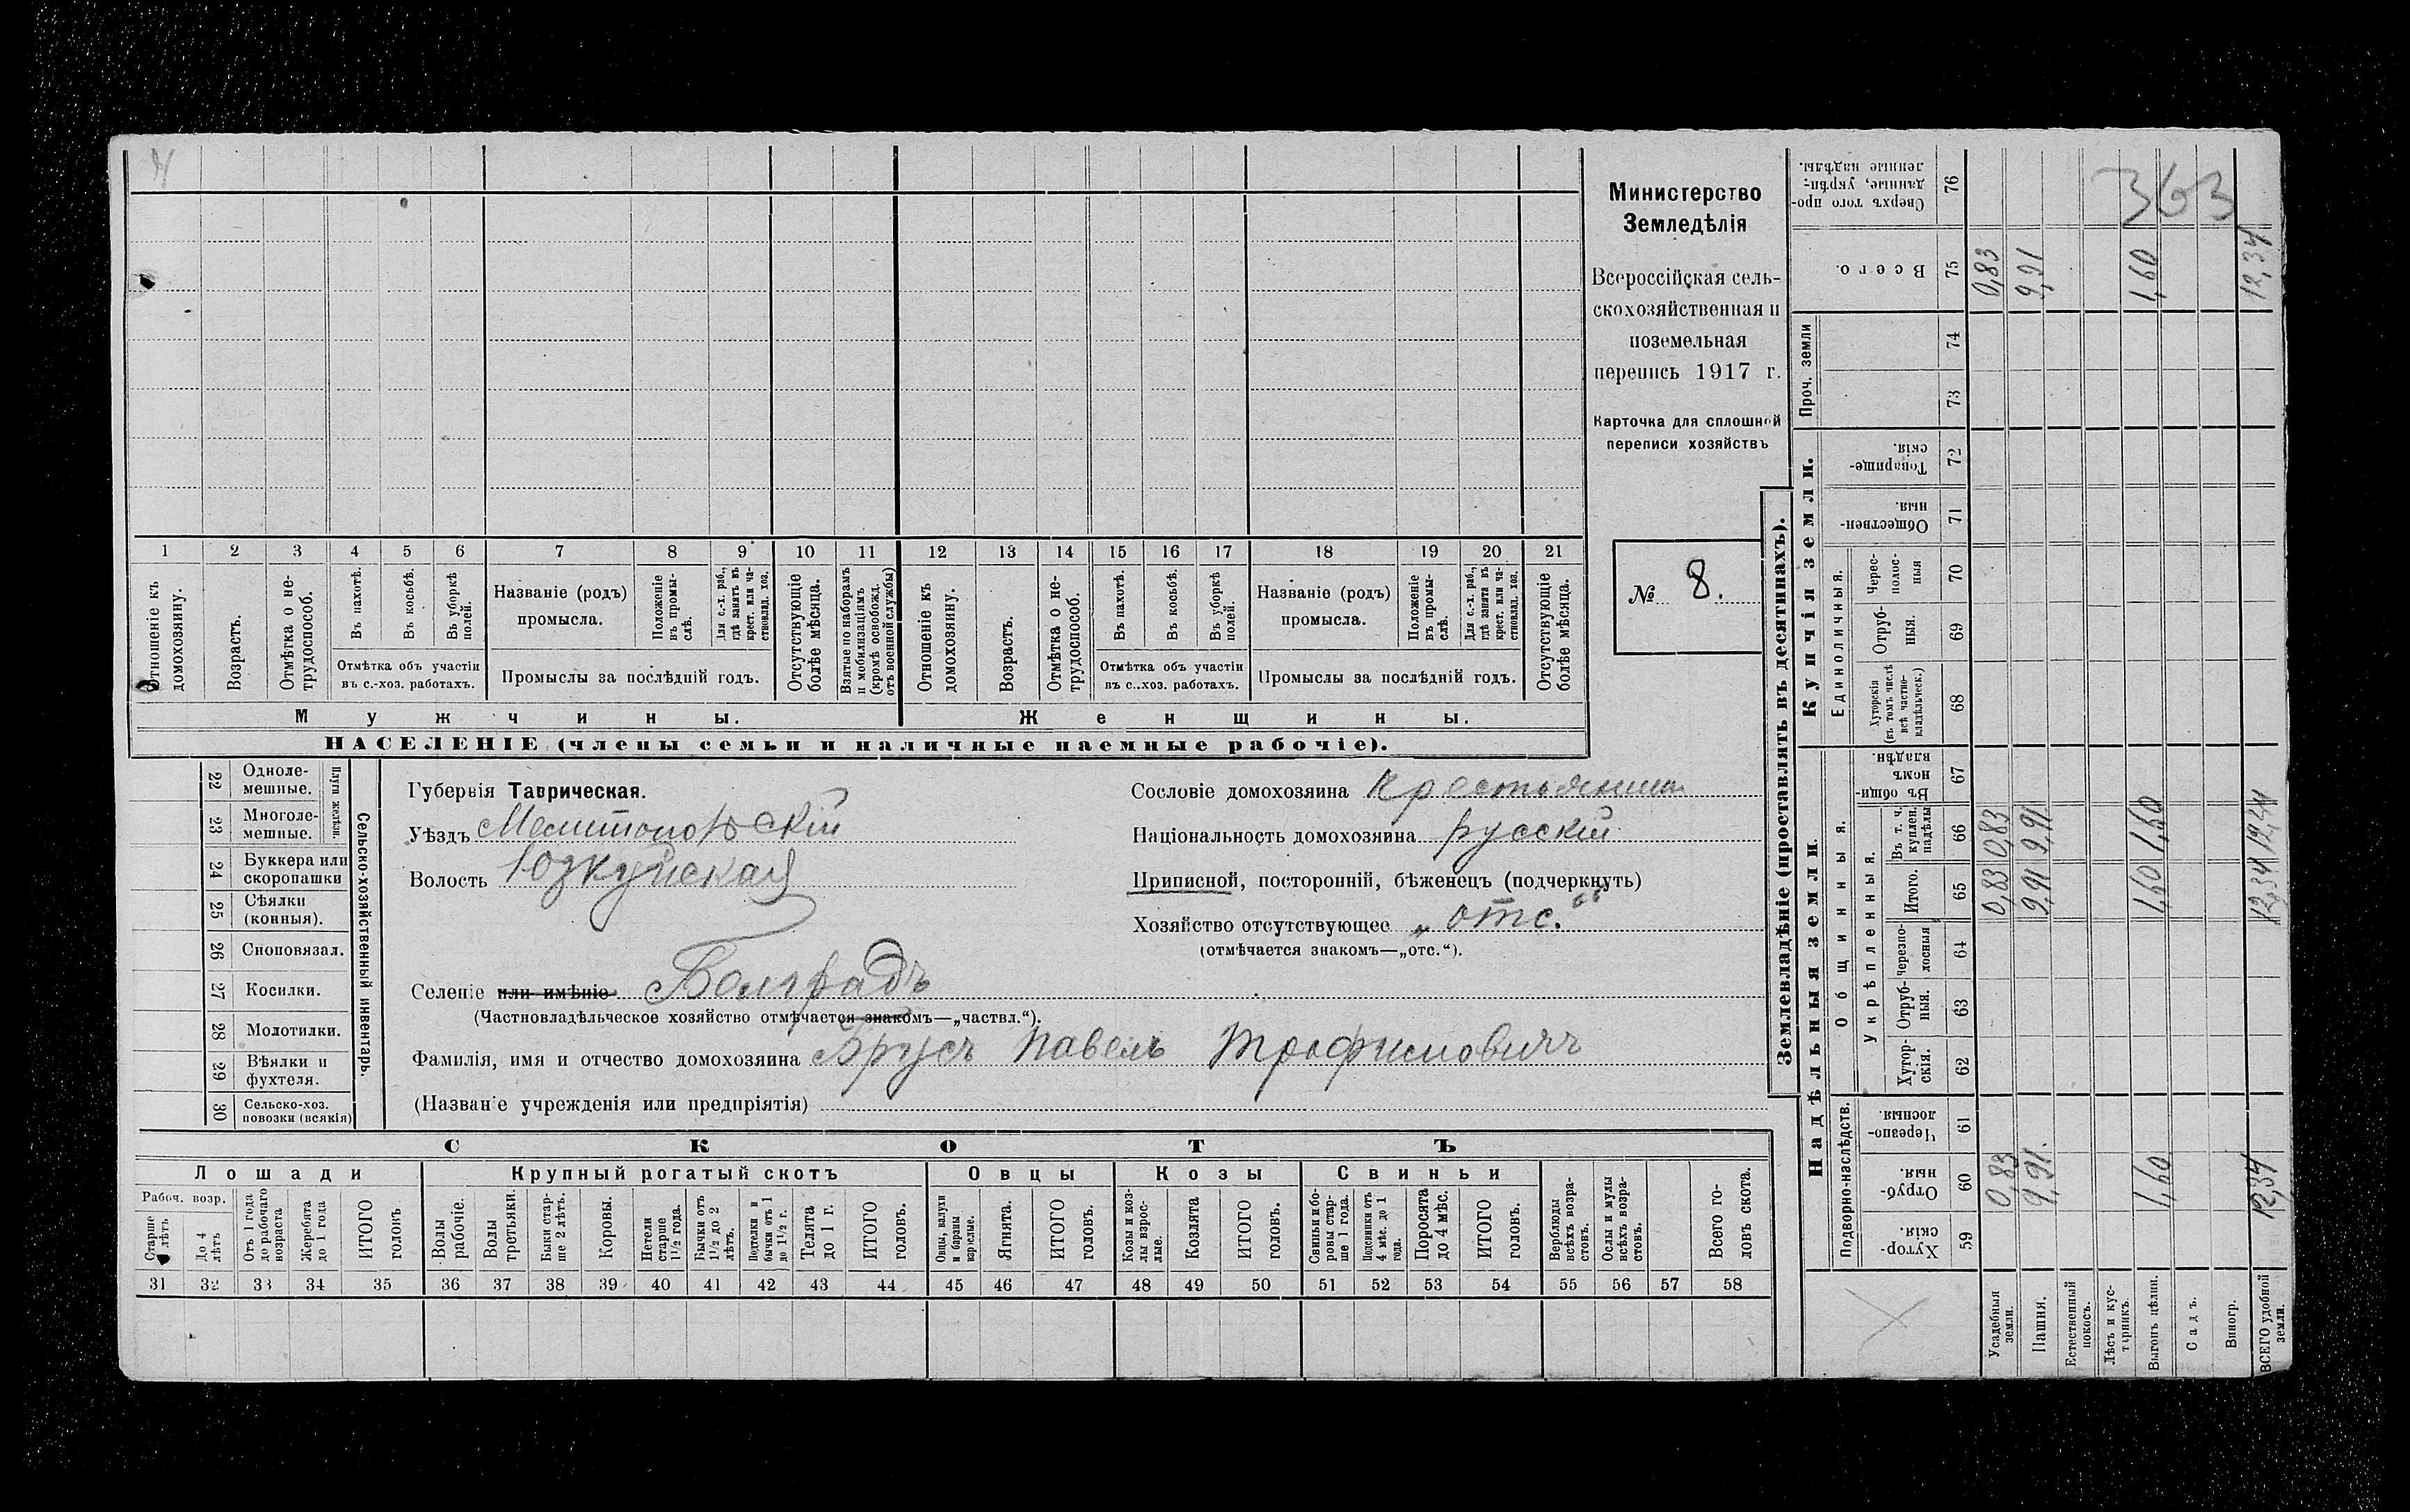 363
Министерство
Земледѣлія
Всероссійская сель-
скохозяйственная и
поземельная
перепись 1917 г.
Карточка для сплошной
переписи хозяйствъ
№ 8.
1 2 3 4 5 6 7 8 9 10 11 12 13 14 15 16 17 18 19 20 21
Отношеніе къ домохозяину.
Возрастъ.
Отмѣтка о не-трудоспособ.
Въ пахотѣ.
Въ косьбѣ.
Въ уборкѣ полей.
Отмѣтка объ участіи
въ с.-хоз. работахъ.
Названіе (родъ)
промысла.
Положеніе въ промы-слѣ.
Для с.-х. раб., гдѣ занятъ въ крест. или ча-стновлад. хоз.
Промыслы за послѣдній годъ.
Отсутствующіе болѣе мѣсяца.
Взятые по наборамъ и мобилизаціямъ (кромѣ освобожд. отъ военной службы)
Отношеніе къ домохозяину.
Возрастъ.
Отмѣтка о не-трудоспособ.
Въ пахотѣ.
Въ косьбѣ.
Въ уборкѣ полей.
Отмѣтка объ участіи
въ с.-хоз. работахъ.
Названіе (родъ)
промысла.
Положеніе въ промы-слѣ.
Для с.-х. раб., гдѣ занята въ крест. или ча-стновлад. хоз.
Промыслы за послѣдній годъ.
Отсутствующіе болѣе мѣсяца.
Мужчины.
Женщины.
НАСЕЛЕНІЕ (члены семьи и наличные наемные рабочіе).
22 Одноле-мешные.
23 Многоле-мешные.
Плуги желѣзн.
24 Буккера или скоропашки
25 Сѣялки (конныя).
26 Сноповязал.
27 Косилки.
28 Молотилки.
29 Вѣялки и фухтеля.
30 Сельско-хоз. повозки (всякія)
Сельско-хозяйственный инвентарь.
Губернія Таврическая.
Уѣздъ Мелитопольскій
Волость Юзкуйская
Селеніе или имѣніе Болградъ
(Частновладѣльческое хозяйство отмѣчается знакомъ—„частвл.“).
Фамилія, имя и отчество домохозяина Брусъ Павелъ Трофимовичъ
(Названіе учрежденія или предпріятія)
Сословіе домохозяина Крестьянинъ
Національность домохозяина русскій
Приписной, посторонній, бѣженецъ (подчеркнуть)
Хозяйство отсутствующее „отс.“
(отмѣчается знакомъ—„отс.“).
СКОТЪ
Лошади
Крупный рогатый скотъ
Овцы
Козы
Свиньи
Рабоч. возр.
Старше 4 лѣтъ
До 4 лѣтъ
Отъ 1 года до рабочаго возраста
Жеребята до 1 года
ИТОГО головъ
Волы рабочіе.
Волы третьяки.
Быки стар-ше 2 лѣтъ.
Коровы.
Нетели старше 1½ года.
Бычки отъ 1½ до 2 лѣтъ.
Подтелки и бычки отъ 1 до 1½ г.
Телята до 1 г.
ИТОГО головъ.
Овцы, валухи и бараны взрослые.
Ягнята.
ИТОГО головъ.
Козы и коз-лы взрос-лые.
Козлята
ИТОГО головъ.
Свиньи и бо-ровы стар-ше 1 года.
Подсвинки отъ 4 мѣс. до 1 года.
Поросята до 4 мѣс.
ИТОГО головъ.
Верблюды всѣхъ возра-стовъ.
Ослы и мулы всѣхъ возра-стовъ.
Всего го-ловъ скота.
31 32 33 34 35 36 37 38 39 40 41 42 43 44 45 46 47 48 49 50 51 52 53 54 55 56 57 58
Землевладѣніе (проставлять въ десятинахъ).
Надѣльныя земли.
Купчія земли.
Проч. земли
Подворно-наслѣдств.
Общинныя.
Укрѣпленныя.
Единоличныя.
Хутор-скія. 59
Отруб-ныя. 60
Черезпо-лосныя. 61
Хутор-скія. 62
Отруб-ныя. 63
Черезпо-лосныя 64
Итого. 65
Въ т. ч. куплен. надѣлы 66
Въ общи-номъ владѣн. 67
Хуторскія (въ томъ числѣ всѣ частно-владѣльческ.) 68
Отруб-ныя. 69
Черес-полос-ныя 70
Обществен-ныя. 71
Товарище-скія. 72
73
74
Всего. 75
Сверхъ того про-данные, укрѣп-ленные надѣлы. 76
Усадебныя земли. 0,83 0,83 0,83 0,83
Пашня. 9,91. 9,91 9,91 9,91
Естественный покосъ.
Лѣсъ и кус-тарникъ.
Выгонъ цѣлин. 1,60 1,60 1,60 1,60
Садъ.
Виногр.
ВСЕГО удобной земли. 12,34 12,34 12,34 12,34